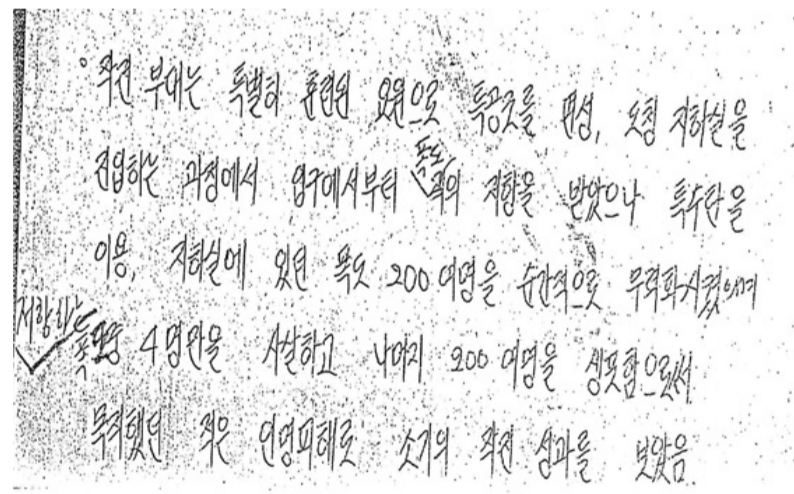 ° 작전 부대는 특별히 훈련된 요원으로 특공조를 편성, 도청 지하실을
폭도
진입하는 과정에서 입구에서부터 적의 저항을 받았으나 특수탄을
이용, 지하실에 있던 폭도 200여명을 순간적으로 무력화시켰으며
저항하는
폭도 4명만을 사살하고 나머지 200여명을 생포함으로써
적은 인명피해로 소기의 작전 성과를 낳았음